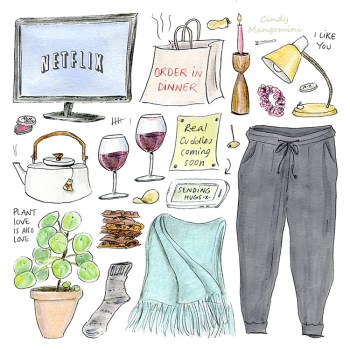 NETFLIX
ORDER IN
DINNER
Cindy
Mangomini
I LIKE
YOU
Real
Cuddles
coming
soon
SENDING
HUGS x
PLANT
LOVE
IS ALSO
LOVE